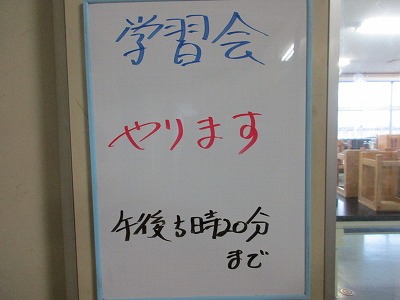 学習会
やります
午後5時20分
まで